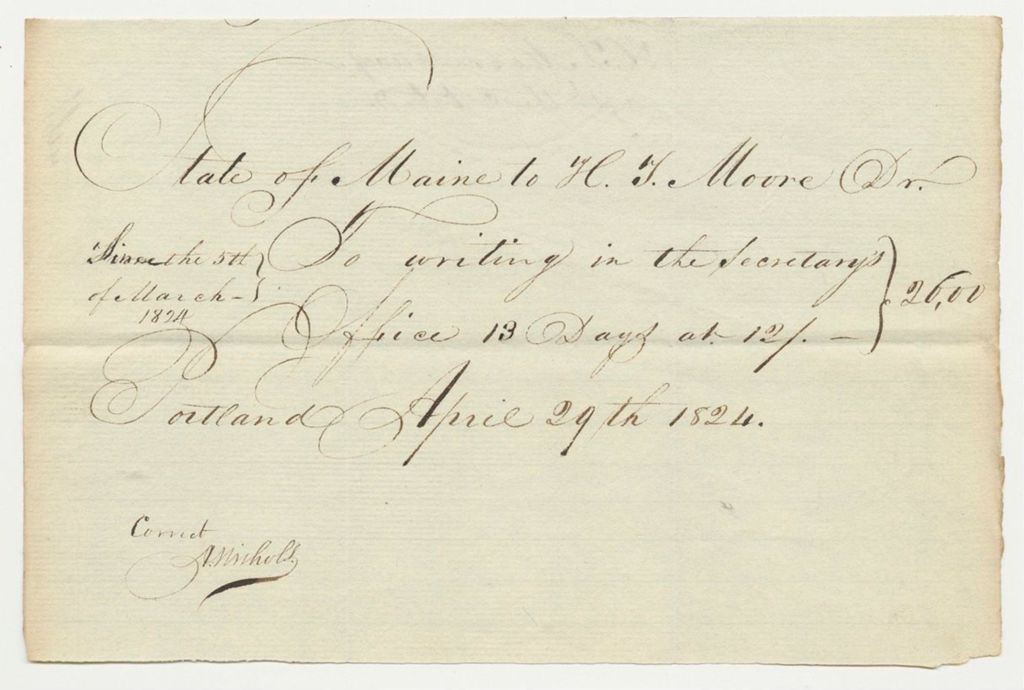 State of Maine to H. T. Moore Dr.
Since the 5th of March – 1824 } To writing in the Secretarys
Office 13 Days at 12/. – } 26,00
Portland April 29th 1824.
Correct
A. Nichols.